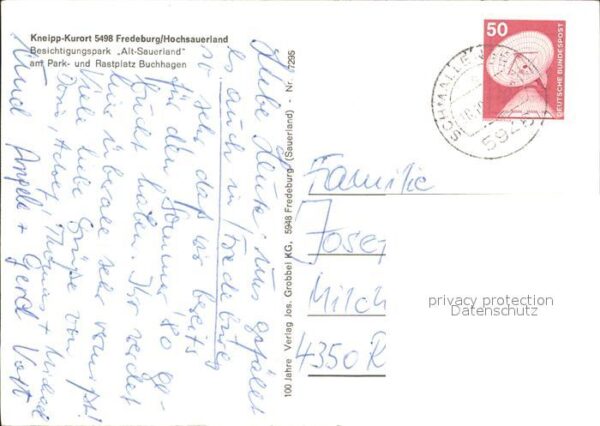 Kneipp-Kurort 5498 Fredeburg/Hochsauerland
Besichtigungspark „Alt-Sauerland"
am Park- und Rastplatz Buchhagen
Liebe Leute! Uns gefällt
es auch in Fredeburg
so sehr daß wir bereits
für den Sommer '80 ge-
bucht haben. Ihr werdet
hier überall sehr vermißt!
Viele liebe Grüße von
Doris, Thomas + Michael
und Angela + Gerd Vott
100 Jahre Verlag Jos. Grobbel KG, 5948 Fredeburg (Sauerland) - Nr. 7295
50
DEUTSCHE BUNDESPOST
SCHMALLENBERG
5948
Familie
Josef
Milch
4350 R
privacy protection
Datenschutz